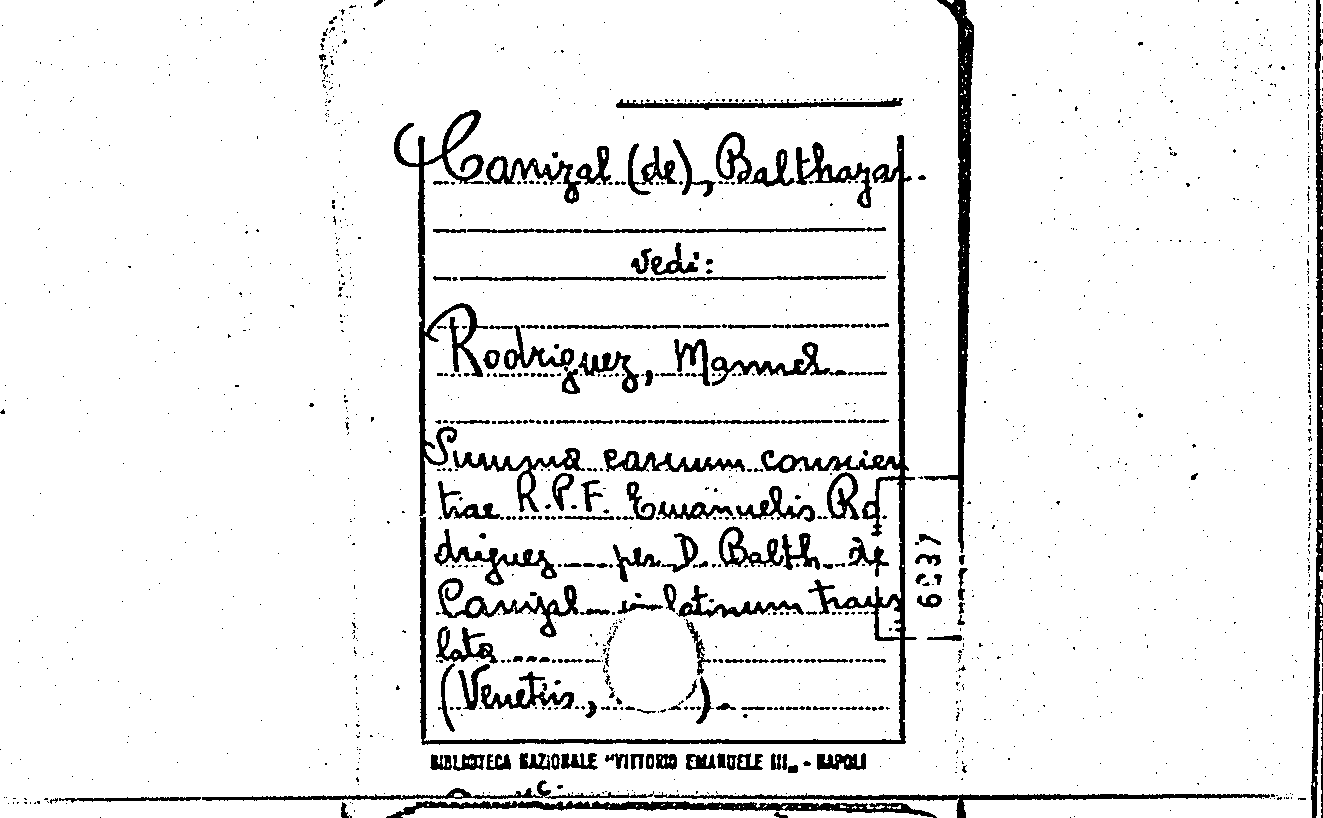 Canizal (de), Balthazar.
vedi:
Rodriguez, Manuel.
Summa casuum conscien
tiae R.P.F. Emanuelis Ro
driguez ... per D. Balth. de
Canizal ... in latinum trans
lata ...
(Venetiis, ).
6937
BIBLIOTECA NAZIONALE "VITTORIO EMANUELE III„ - NAPOLI